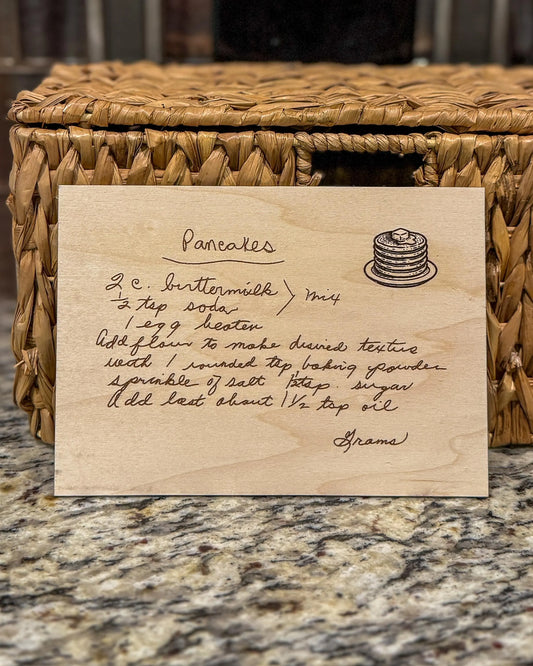 Pancakes
2 c. buttermilk > mix
1/2 tsp soda
1 egg beaten
Add flour to make desired texture
with 1 rounded tsp baking powder
sprinkle of salt 1 tsp. sugar
Add last about 1 1/2 tsp oil
Grams